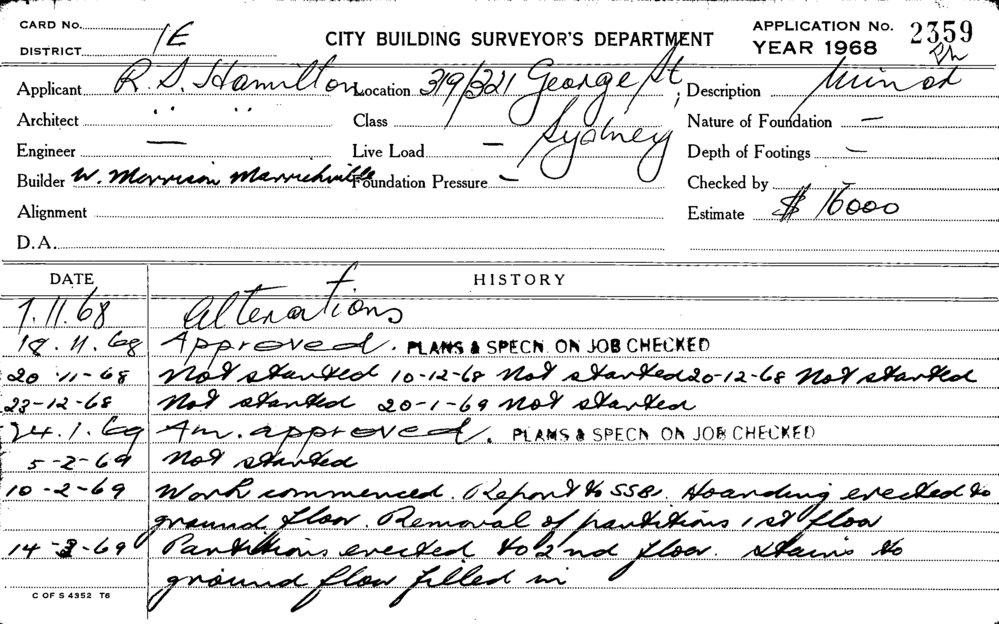 CARD No.
DISTRICT 1E
CITY BUILDING SURVEYOR'S DEPARTMENT
APPLICATION No. 2359
YEAR 1968
Applicant R. S. Hamilton Location 319/321 George St, Description Minor
Architect " " Class Sydney Nature of Foundation —
Engineer — Live Load — Depth of Footings —
Builder W. Morrison Marrickville Foundation Pressure — Checked by —
Alignment Estimate $ 16000
D.A.
DATE HISTORY
7.11.68 Alterations
18.11.68 Approved. PLANS & SPECN. ON JOB CHECKED
20-11-68 Not started 10-12-68 Not started 20-12-68 Not started
23-12-68 Not started 20-1-69 Not started
24.1.69 Am. approved. PLANS & SPECN ON JOB CHECKED
5-2-69 Not started
10-2-69 Work commenced. Report to SSB. Hoarding erected to
ground floor. Removal of partitions 1st floor
14-3-69 Partitions erected to 2nd floor. Stairs to
ground floor filled in
C OF S 4352 T6